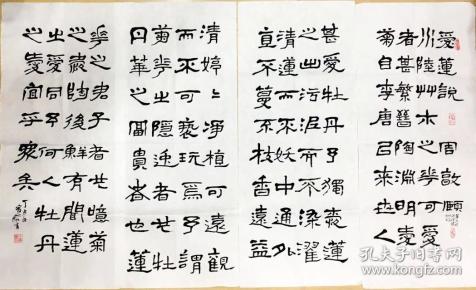 愛蓮說 周敦頤
水陸艸木之華可愛
者甚繁晉陶淵明愛
菊自李唐以來世人
甚愛牡丹予獨愛蓮
之出污泥而不染濯
清漣而不妖中通外
直不蔓不枝香遠益
清婷〻淨植可遠觀
而不可褻玩焉予謂
菊華之隱逸者也牡
丹華之富貴者也蓮
華之君子者也噫菊
之愛陶後鮮有聞蓮
之愛同予何人牡丹
之愛宜乎眾矣
孔夫子旧书网